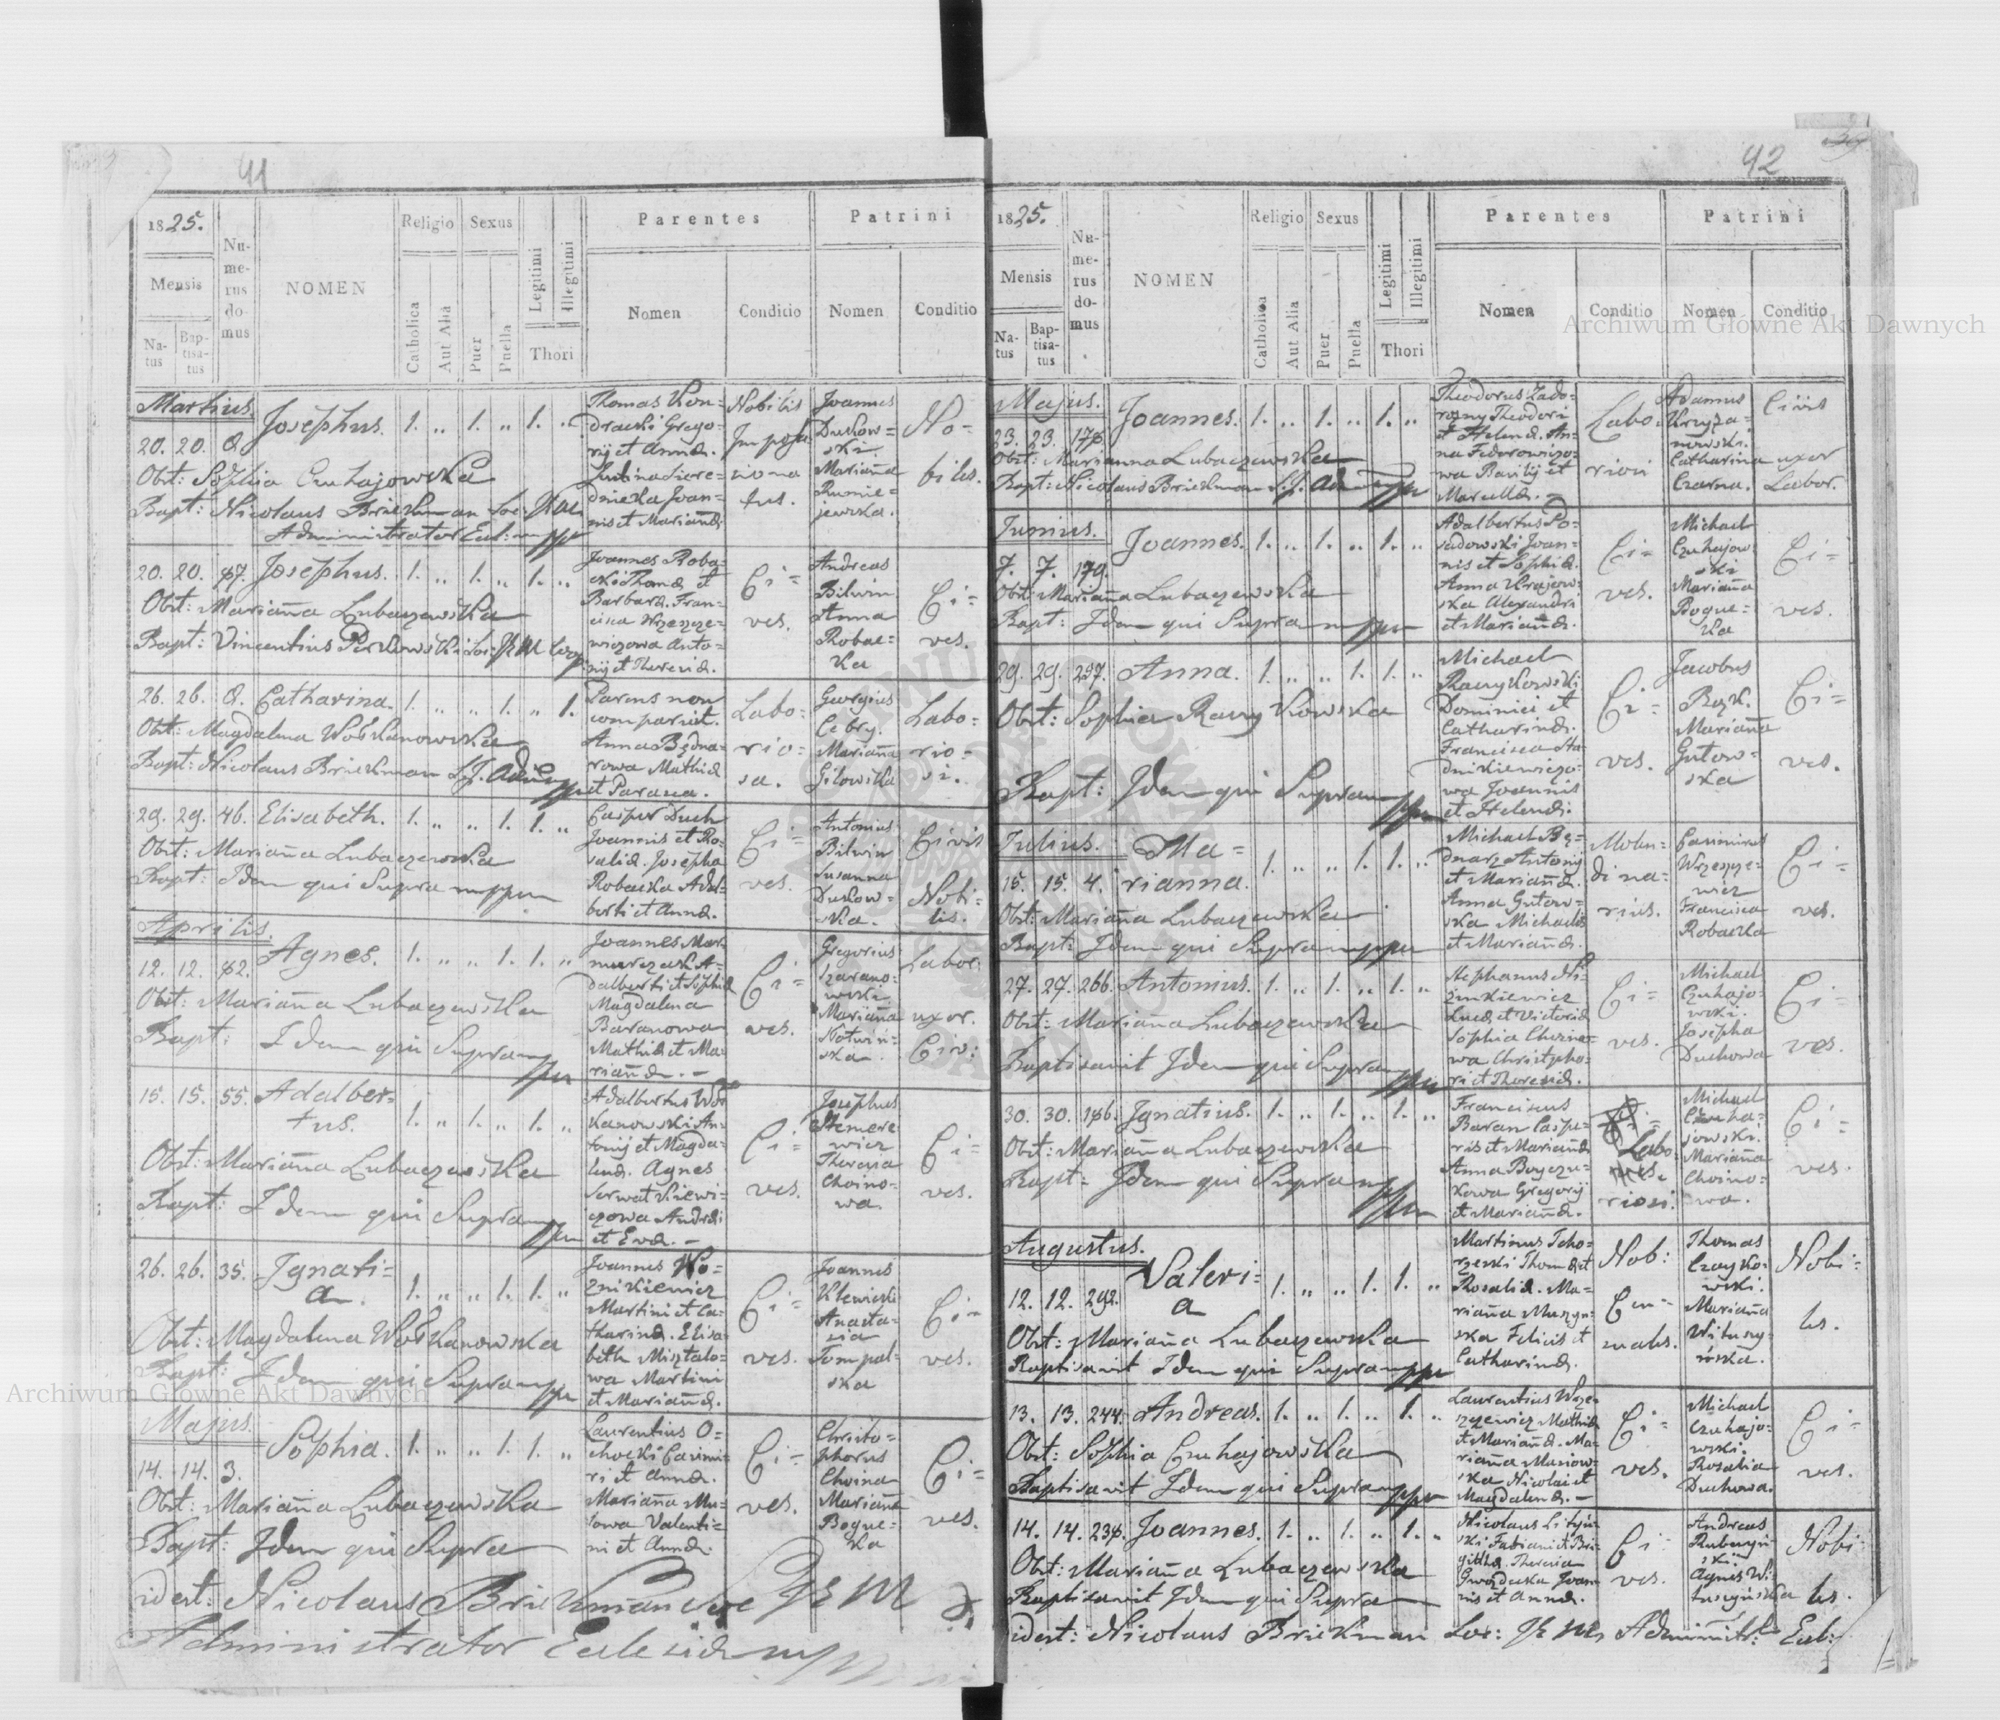 41
1825.
Mensis
Na-
tus
Bap-
tisa-
tus
Nu-
me-
rus
do-
mus
NOMEN
Religio
Catholica
Aut Alia
Sexus
Puer
Puella
Legitimi
Illegitimi
Thori
Parentes
Nomen
Conditio
Patrini
Nomen
Conditio
Martius.
20. 20. Josephus. 1. „ 1. „ 1. „
Obst: Sophia Czuhajowska
Bapt: Nicolaus Brickman Soc:
Administrator Eccl:
Thomas Kon-
dracki Grego-
rij et Annæ.
Joan-
nis et Mariannæ
Nobilis
Joannes
Duchow-
ski.
Marianna
Rumie-
jewska.
No-
biles.
20. 20. Josephus. 1. „ 1. „ 1. „
Obst: Marianna Lubaczewska
Bapt: Vincentius
Joannes Roba-
cki Thomæ et
Barbaræ. Fran-
cisca Wrzeszcze-
wiczowa Anto-
nij et Theresiæ.
Ci-
ves.
Andreas
Bilwin
Anna
Robac-
ka
Ci-
ves.
26. 26. Catharina. 1. „ „ 1. „ 1.
Obst: Magdalena Wołkanowska
Bapt: Nicolaus Brickman S.J.
Parens non
comparuit.
Anna Będna-
rowa Mathiæ
et Parasca.
Labo-
rio-
sa.
Georgius
Cebry.
Marianna
Gilowska
Labo-
rio-
si.
29. 29. 46. Elisabeth. 1. „ „ 1. 1. „
Obst: Marianna Lubaczewska
Bapt: Idem qui Supra mppr
Casper Duch
Joannis et Ro-
saliæ. Josepha
Robacka Adal-
berti et Annæ.
Ci-
ves.
Antonius
Bilwin
Susanna
Duchow-
ska.
Civis
Nobi-
lis.
Aprilis.
12. 12. Agnes. 1. „ „ 1. 1. „
Obst: Marianna Lubaczewska
Bapt: Idem qui Supra mppr
Joannes
A-
dalberti et Sophiæ
Magdalena
Baranowa
Mathiæ et Ma-
riannæ. –
Ci-
ves.
Gregorius
Szarano-
wski.
Marianna
Notwin-
ska.
Labor.
uxor.
Civ:
15. 15. 55. Adalber-
tus. 1. „ 1. „ 1. „
Obst: Marianna Lubaczewska
Bapt: Idem qui Supra mppr
Adalbertus Woł-
kanowski An-
tonij et Magda-
lenæ. Agnes
Serwatkiewi-
czowa Andreæ
et Evæ. –
Ci-
ves.
Josephus
Theresia
Choino-
wa.
Ci-
ves.
26. 26. 35. Ignati-
a. 1. „ „ 1. 1. „
Obst: Magdalena Wołkanowska
Bapt: Idem qui Supra mppr
Joannes Wo-
znikiewicz
Martini et Ca-
tharinæ. Elisa-
beth Misztalo-
wa Martini
et Mariannæ.
Ci-
ves.
Joannes
Klewicki
Anasta-
sia
Tompal-
ska
Ci-
ves.
Majus.
14. 14. 3. Sophia. 1. „ „ 1. 1. „
Obst: Marianna Lubaczewska
Bapt: Idem qui Supra
Laurentius O-
chocki Casimi-
ri et Annæ.
Marianna Mu-
sowa Valenti-
ni et Annæ.
Ci-
ves.
Christo-
phorus
Choina
Marianna
Bogue-
ka
Ci-
ves.
idest: Nicolaus Brickman Soc
Administrator Ecclesiæ mppr
42
1825.
Mensis
Na-
tus
Bap-
tisa-
tus
Nu-
me-
rus
do-
mus
NOMEN
Religio
Catholica
Aut Alia
Sexus
Puer
Puella
Legitimi
Illegitimi
Thori
Parentes
Nomen
Conditio
Patrini
Nomen
Conditio
Majus.
23. 23. Joannes. 1. „ 1. „ 1. „
Obst: Marianna Lubaczewska
Bapt: Nicolaus Brickman S.J.
Theodorus Zado-
rozny Theodori
et Helenæ. An-
na Fedorowiczo-
wa Basilij et
Marcellæ. –
Labo-
riosi
Adamus
Kryza-
nowski.
Catharina
Czarna.
Civis
uxor
Labor.
Junius.
7. 7. 179. Joannes. 1. „ 1. „ 1. „
Obst: Marianna Lubaczewska
Bapt: Idem qui Supra mppr
Adalbertus Po-
sadowski Joan-
nis et Sophiæ.
Anna Krajow-
ska Alexandri
et Mariannæ.
Ci-
ves.
Michael
Czuhajow-
ski
Marianna
Bogue-
ka
Ci-
ves.
29. 29. 257. Anna. 1. „ „ 1. 1. „
Obst: Sophia Raczykowska
Bapt: Idem qui Supra mppr
Michael
Raczykowski
Dominici et
Catharinæ.
Francisca Sta-
dnikiewiczo-
wa Joannis
et Helenæ.
Ci-
ves.
Jacobus
Bąk.
Marianna
Gutow-
ska
Ci-
ves.
Julius.
15. 15. 4. Ma-
rianna. 1. „ „ 1. 1. „
Obst: Marianna Lubaczewska
Bapt: Idem qui Supra mppr
Michael Bę-
dnarz Antonij
et Mariannæ.
Anna Gutow-
ska Michaelis
et Mariannæ.
Molen-
dina-
rius.
Casimirus
Wrzeszcze-
wicz
Francisca
Robacka
Ci-
ves.
27. 27. 266. Antonius. 1. „ 1. „ 1. „
Obst: Marianna Lubaczewska
Baptisavit Idem qui Supra mppr
Stephanus
Lucæ et Victoriæ
Sophia
Christopho-
ri et Theresiæ.
Ci-
ves.
Michael
Czuhajo-
wski.
Josepha
Duchowa
Ci-
ves.
30. 30. Ignatius. 1. „ 1. „ 1. „
Obst: Marianna Lubaczewska
Bapt: Idem qui Supra mppr
Franciscus
Baran Caspe-
ris et Mariannæ
Anna
Gregorij
et Mariannæ.
Labo-
riosi.
Michael
Czuha-
jowski.
Marianna
Choino-
wa.
Ci-
ves.
Augustus.
12. 12. 292. Valeri-
a 1. „ „ 1. 1. „
Obst: Marianna Lubaczewska
Baptisavit Idem qui Supra mppr
Martinus Tcho-
rzewski Thomæ et
Rosaliæ. Ma-
rianna Muszyn-
ska Felicis et
Catharinæ.
Nob:
Thomas
Czayko-
wski.
Marianna
Nobi-
les.
13. 13. 244. Andreas. 1. „ 1. „ 1. „
Obst: Sophia Czuhajowska
Baptisavit Idem qui Supra mppr
Laurentius Wrze-
szczewicz Mathiæ
et Mariannæ. Ma-
rianna
Nicolai et
Magdalenæ. –
Ci-
ves.
Michael
Czuhajo-
wski.
Rosalia
Duchowa.
Ci-
ves.
14. 14. Joannes. 1. „ 1. „ 1. „
Obst: Marianna Lubaczewska
Baptisavit Idem qui Supra
Nicolaus
Fabiani et Bri-
gittæ. Theresia
Gwozdecka Joan-
nis et Annæ.
Ci-
ves.
Andreas
Agnes
Nobi-
les.
idest: Nicolaus Brickman Soc: Administr: Eccl:
Archiwum Główne Akt Dawnych
Archiwum Główne Akt Dawnych